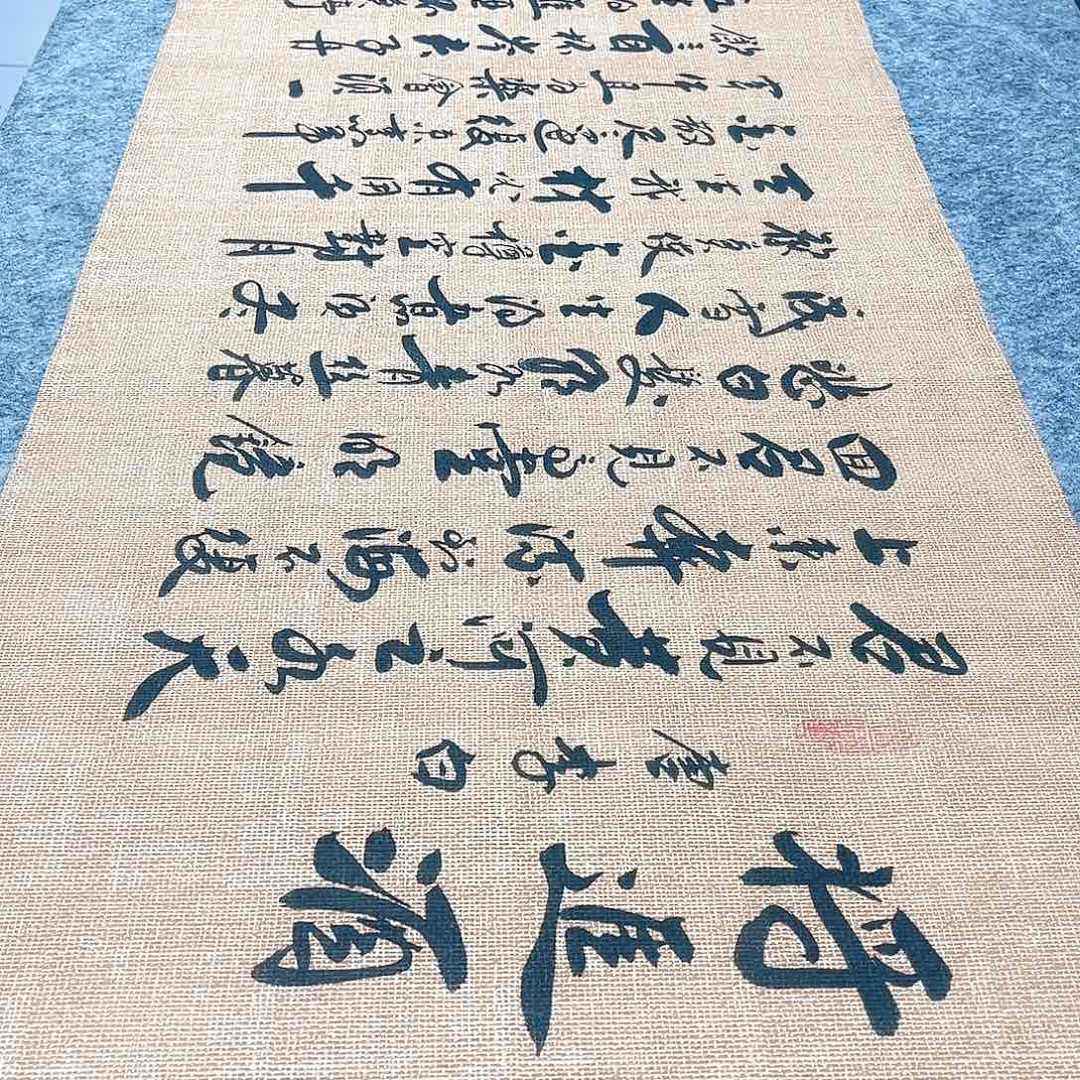 将進酒
唐李白
君不見黄河之水天
上来奔流到海不復
回君不見高堂明鏡
悲白髮朝如青丝暮
成雪人生得意須尽
歡莫使金樽空對月
天生我材必有用千
金散尽還復来烹羊
宰牛且为樂會須一
飲三百杯岑夫子丹